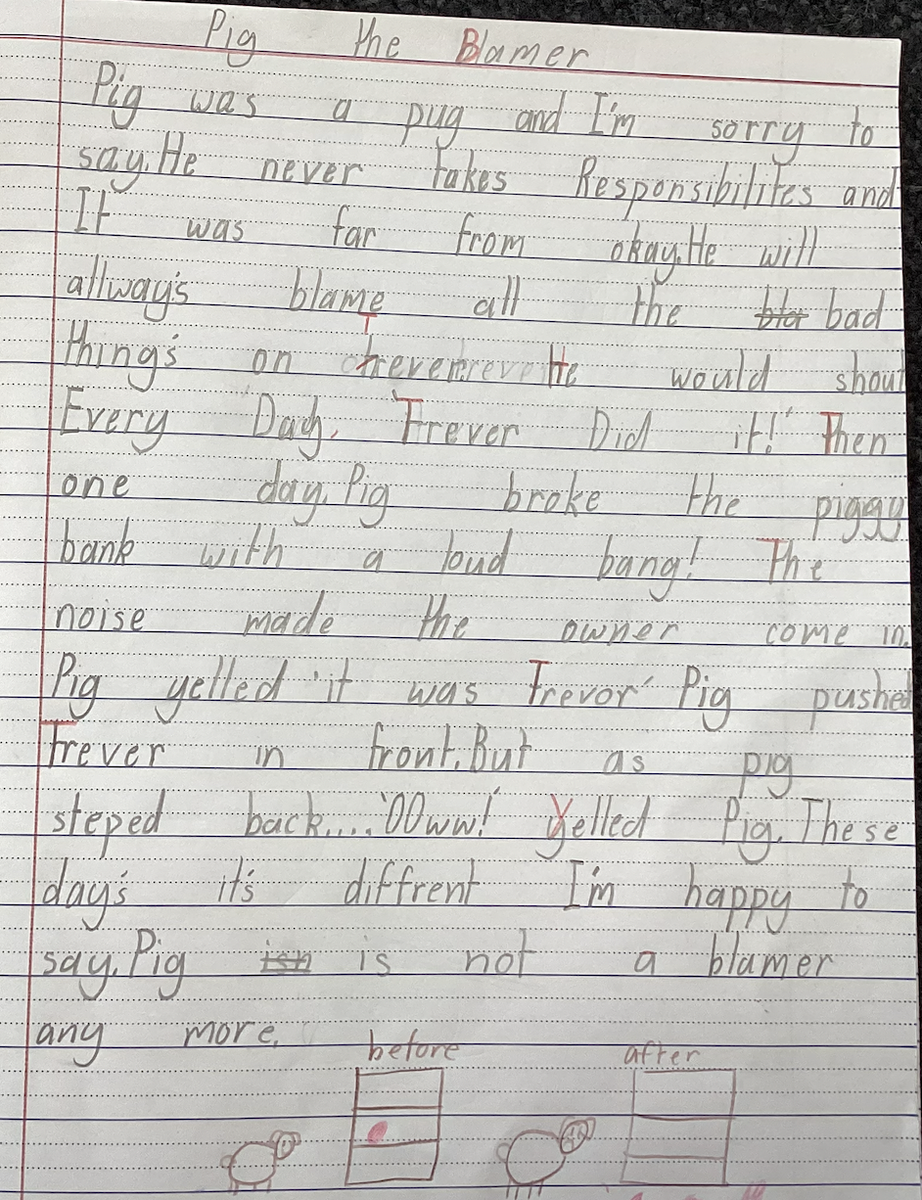 Pig the Blamer
Pig was a pug and I'm sorry to
say. He never takes Responsibilites and
It was far from okay. He will
allway's blame all the bad
thing's on Trever He would shout
Every Day, 'Trever Did it!' Then
one day, Pig broke the piggy
bank with a loud bang! The
noise made the owner come in.
Pig yelled 'it was Trevor' Pig pushed
Trever in front. But as pig
steped back.... 'OOww!' Yelled Pig. These
day's it's diffrent I'm happy to
say, Pig is not a blamer
any more.
before after